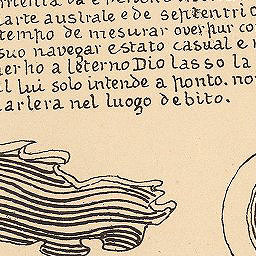 arte auslrale e de septentri
tempo de mesurar over pur con
suo navegar estato casual e
a leterno Dio lasso la
lui solo intende a ponto. no
arlera nel luogo debito.